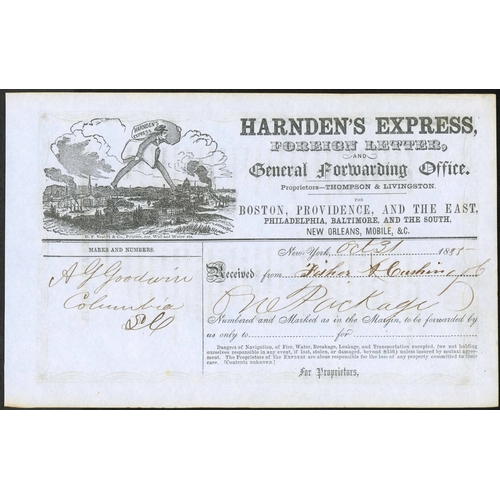 HARNDEN'S
EXPRESS
HARNDEN'S EXPRESS,
FOREIGN LETTER,
AND
General Forwarding Office.
Proprietors—THOMPSON & LIVINGSTON.
FOR
BOSTON, PROVIDENCE, AND THE EAST,
PHILADELPHIA, BALTIMORE, AND THE SOUTH,
NEW ORLEANS, MOBILE, &C.
MARKS AND NUMBERS.
A G Goodwin
Columbia
S C
New-York, Oct 31 185
Received from A Cushing
One Package
Numbered and Marked as in the Margin, to be forwarded by
us only to for
Dangers of Navigation, of Fire, Water, Breakage, Leakage, and Transportation excepted, (we not holding
ourselves responsible in any event, if lost, stolen, or damaged, beyond $150) unless insured by mutual agreement.
The Proprietors of the EXPRESS are alone responsible for the loss of any property committed to their
care. [Contents unknown.]
For Proprietors,